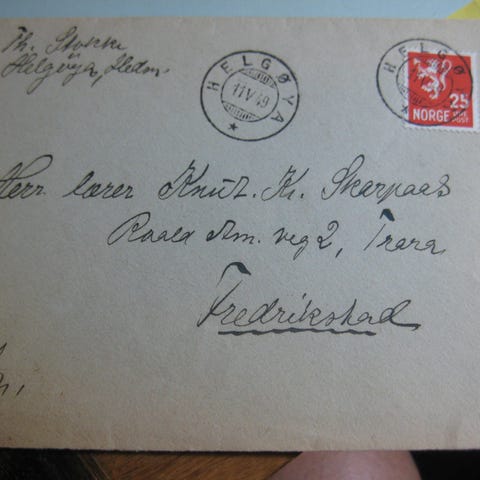 Th. Stokke
Helgøya, Hedm.
HELGØYA
11 V 49
HELGØ
25
NORGE POST
Herr lærer Knut. K. Skarpaas
Roald Am. veg 2, Trara
Fredrikstad